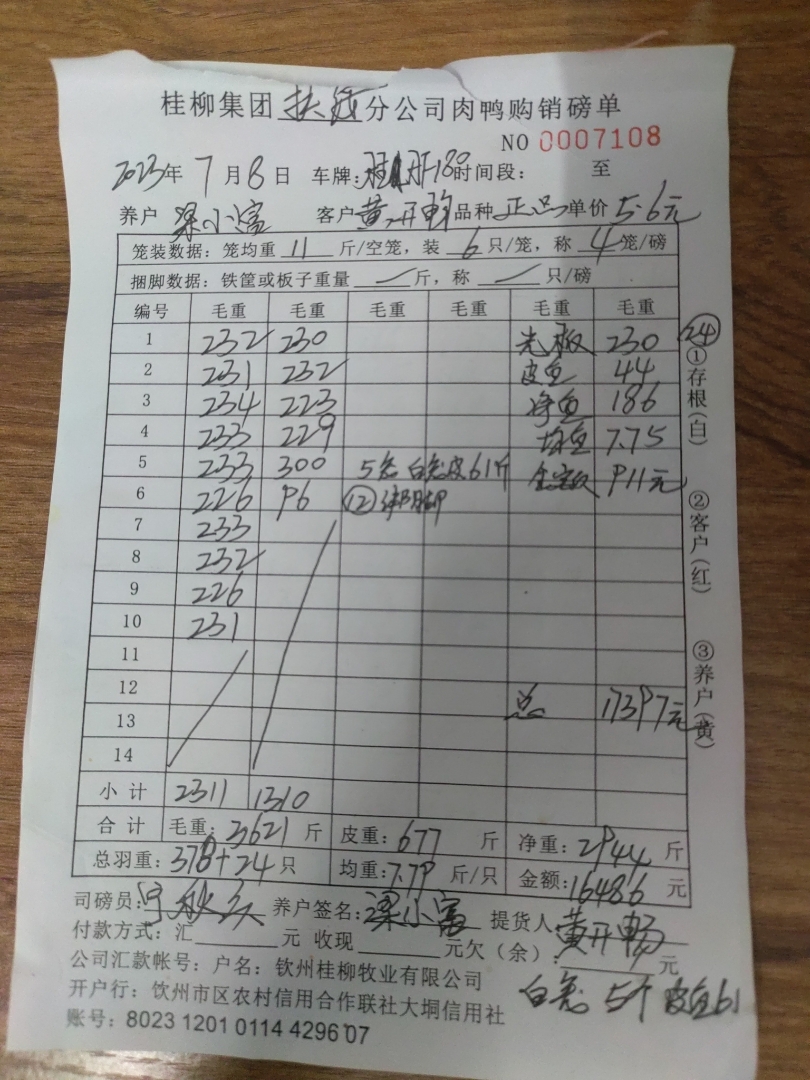 桂柳集团 扶绥 分公司肉鸭购销磅单
NO 0007108
2023年 7 月 8 日 车牌: 时间段: 至
养户 梁小富 客户 黄开畅 品种 正品 单价 5.6元
笼装数据: 笼均重 11 斤/空笼, 装 6 只/笼, 称 4 笼/磅
捆脚数据: 铁筐或板子重量 — 斤, 称 — 只/磅
编号 毛重 毛重 毛重 毛重 毛重 毛重
1 232 230 光板 230
2 231 232 皮重 44
3 234 223 净重 186
4 233 229 均重 7.75
5 233 300 5笼 白笼皮61斤 金额 911元
6 226 96 ⑫绑脚
7 233
8 232
9 226
10 231
11
12 总 17397元
13
14
小计 2311 1310
合计 毛重: 3621 斤 皮重: 677 斤 净重: 2944 斤
总羽重: 378+24 只 均重: 7.79 斤/只 金额: 16486 元
司磅员: 养户签名: 梁小富 提货人 黄开畅
付款方式: 汇 元 收现 元欠(余): 元
公司汇款帐号: 户名: 钦州桂柳牧业有限公司
开户行: 钦州市区农村信用合作联社大垌信用社
账号: 8023 1201 0114 4296 07
白笼 5个 皮重61
24
①存根(白)
②客户(红)
③养户(黄)